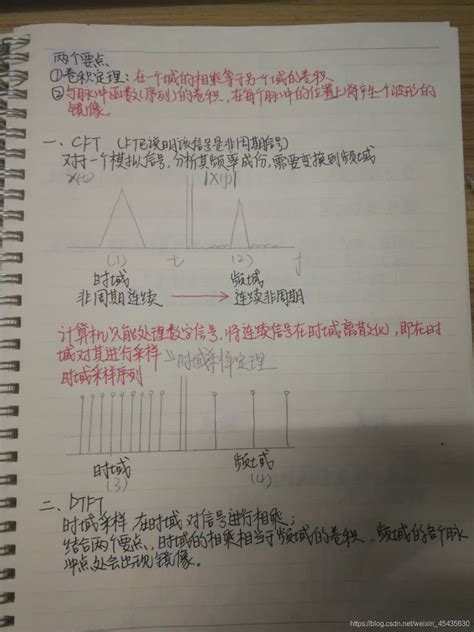 两个要点
①卷积定理：在一个域的相乘等于另一个域的卷积
②与脉冲函数(序列)的卷积，在每个脉冲的位置上将产生一个波形的
镜像。
一、CFT (FT已说明该信号是非周期信号)
对于一个模拟信号，分析其频率成份，需要变换到频域
x(t) |X(f)|
(1) t (2) f
时域 频域
非周期连续 连续非周期
计算机只能处理数字信号，将连续信号在时域离散化，即在时
域对其进行采样 时域采样定理
时域采样序列
时域 频域
(3) (4)
二、DTFT
时域采样，在时域对信号进行相乘；
结合两个要点，时域的相乘相当于频域的卷积，频域的各个脉
冲点处会出现镜像。
https://blog.csdn.net/weixin_45435630